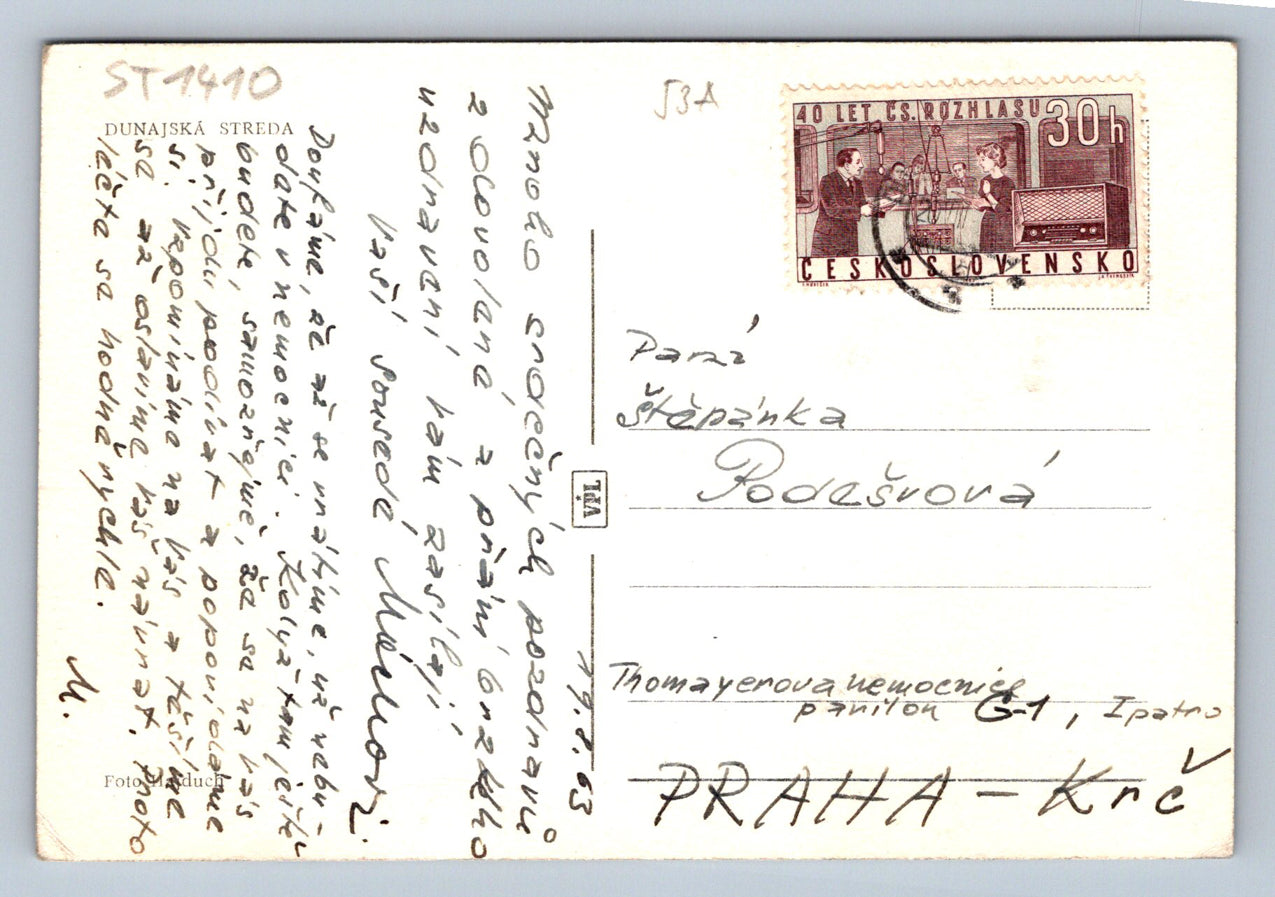 ST1410
53A
DUNAJSKÁ STREDA
40 LET ČS. ROZHLASU 30h
ČESKOSLOVENSKO
19.8.63
Mnoho srdečných pozdravů
z dovolené a přání brzkého
uzdravení Vám zasílají
Vaši sousedé Máchovi.
Doufáme, že až se vrátíme, už nebu-
dete v nemocnici. Když tam ještě
budete, samozřejmě, že se na Vás
přijdu podívat a popovídáme
si. Vzpomínáme na Vás a těšíme
se, až oslavíme Váš návrat. Proto
léčte se hodně rychle.
M.
Foto Hajduch
VTL
Paní
Štěpánka
Podešvová
Thomayerova nemocnice
pavilon G-1, I patro
PRAHA - Krč